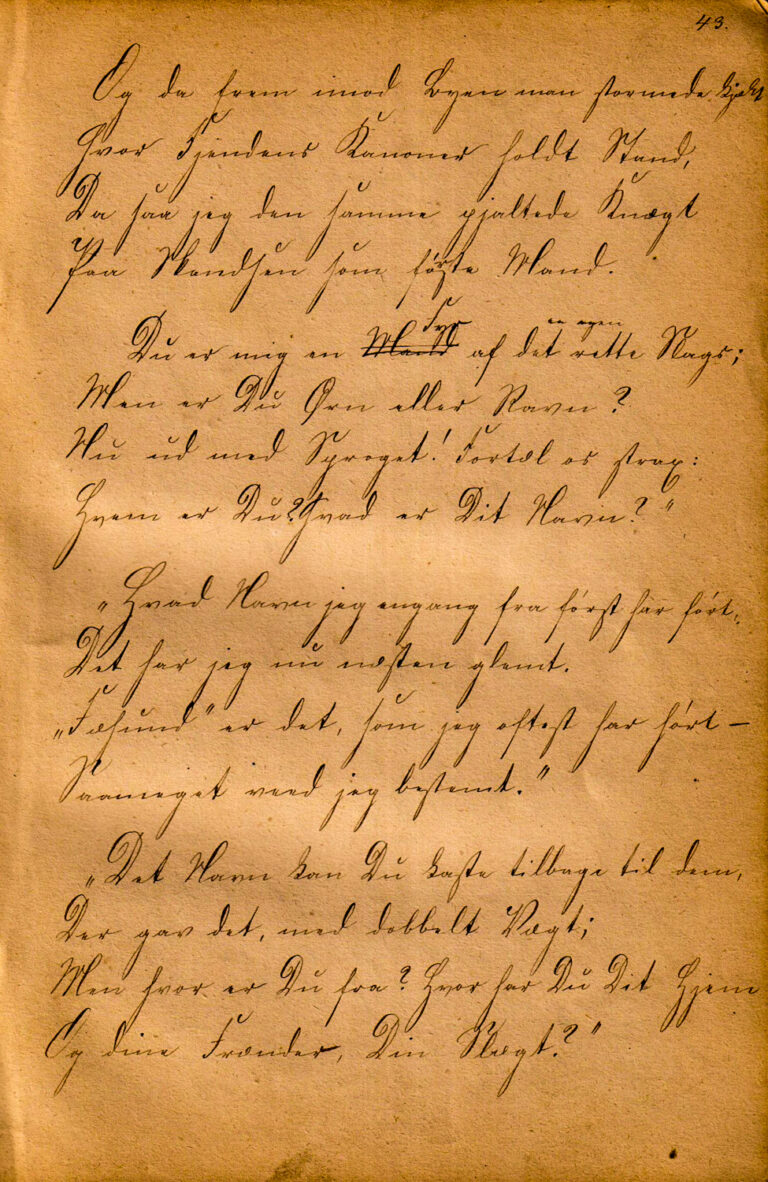 43.
Og da frem imod Byen man stormede kjækt
Hvor Fjendens Kanoner holdt Stand,
Da saa jeg den samme pjaltede Knægt
Paa Skandsen som første Mand.
Du er mig en Mand Fyr af det rette Slags;
Men er Du Ørn eller Ravn?
Nu ud med Sproget! Fortæl os strax:
Hvem er Du? Hvad er Dit Navn?"
„Hvad Navn jeg engang fra først har ført,
Det har jeg nu næsten glemt.
„Fæhund" er det, som jeg oftest har hørt –
Saameget veed jeg bestemt."
„Det Navn kan Du kaste tilbage til dem,
Der gav det, med dobbelt Vægt;
Men hvor er Du fra? Hvor har Du Dit Hjem
Og dine Frænder, Din Slægt?"